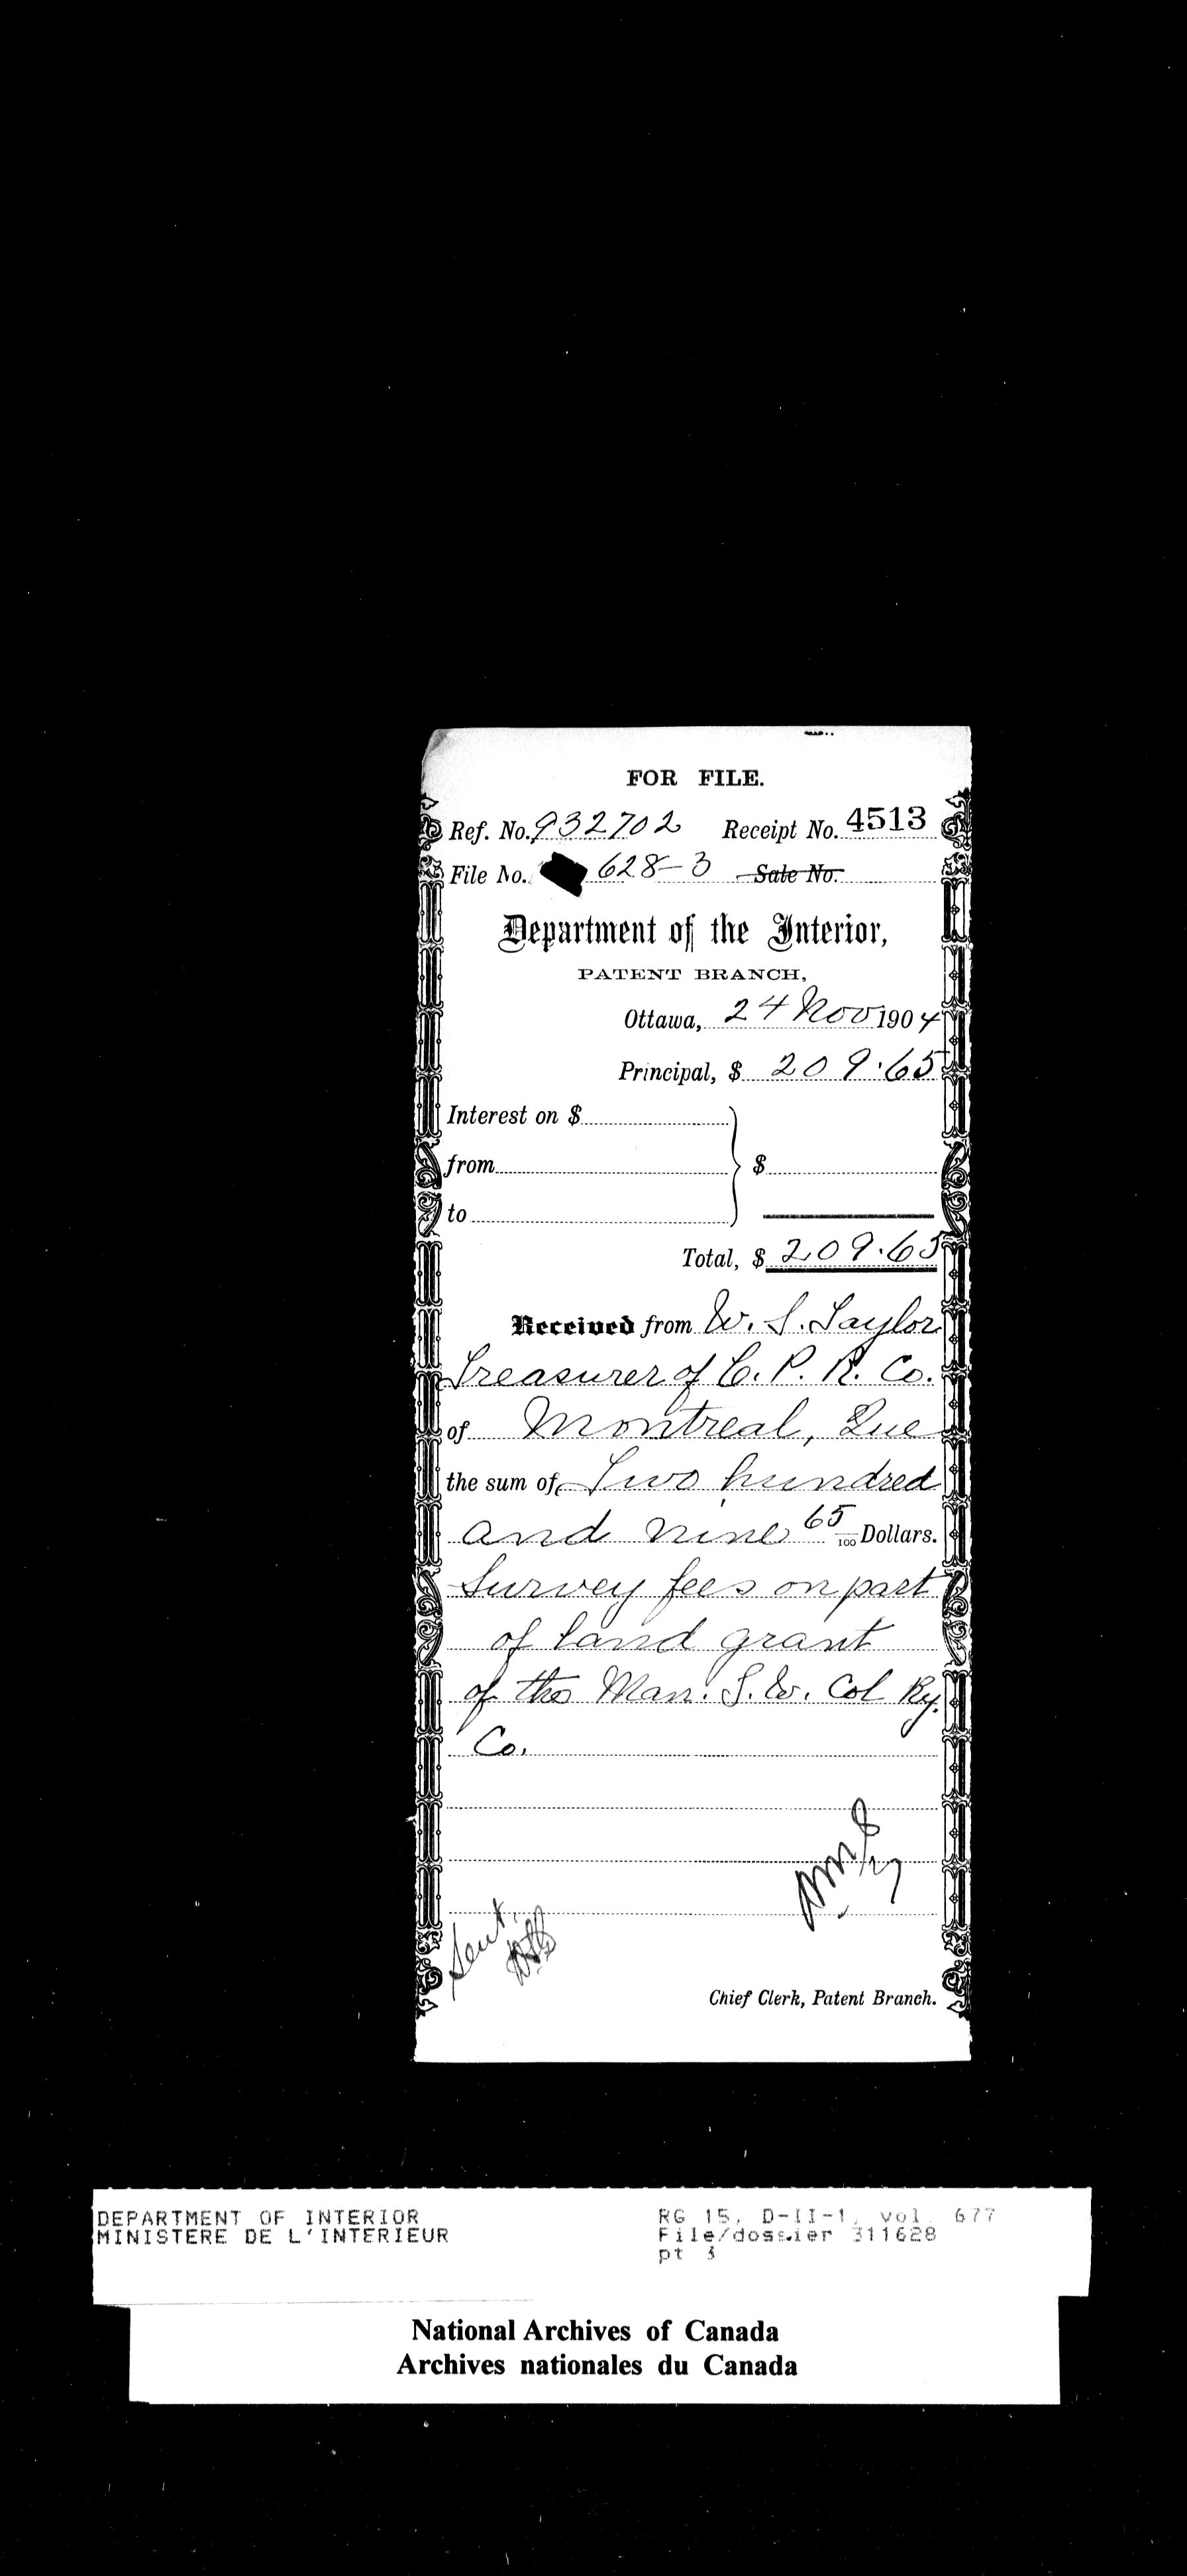 FOR FILE.
Ref. No. 932702 Receipt No. 4513
File No. 628-3 Sale No.
Department of the Interior,
PATENT BRANCH,
Ottawa, 24 Nov 1904
Principal, $ 209.65
Interest on $
from $
to
Total, $ 209.65
Received from W. S. Taylor
Treasurer of C. P. R. Co.
of Montreal, Que
the sum of Two hundred
and nine 65/100 Dollars.
Survey fees on part
of land grant
of the Man. S. W. Col Ry.
Co.
Sent.
Chief Clerk, Patent Branch.
DEPARTMENT OF INTERIOR RG 15, D-II-1, vol. 677
MINISTERE DE L'INTERIEUR File/dossier 311628
pt 3
National Archives of Canada
Archives nationales du Canada